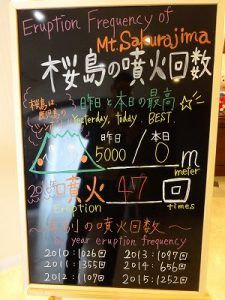 Eruption Frequency of
Mt.Sakurajima
桜島の噴火回数
桜島は
昨日と本日の最高
Yesterday, today. BEST.
昨日 本日
5000 / 0 m
meter
噴火 47 回
Eruption times
〜年別の噴火回数〜
year eruption frequency
2010:1026回 2013:1097回
2011:1355回 2014:656回
2012:1107回 2015:1252回